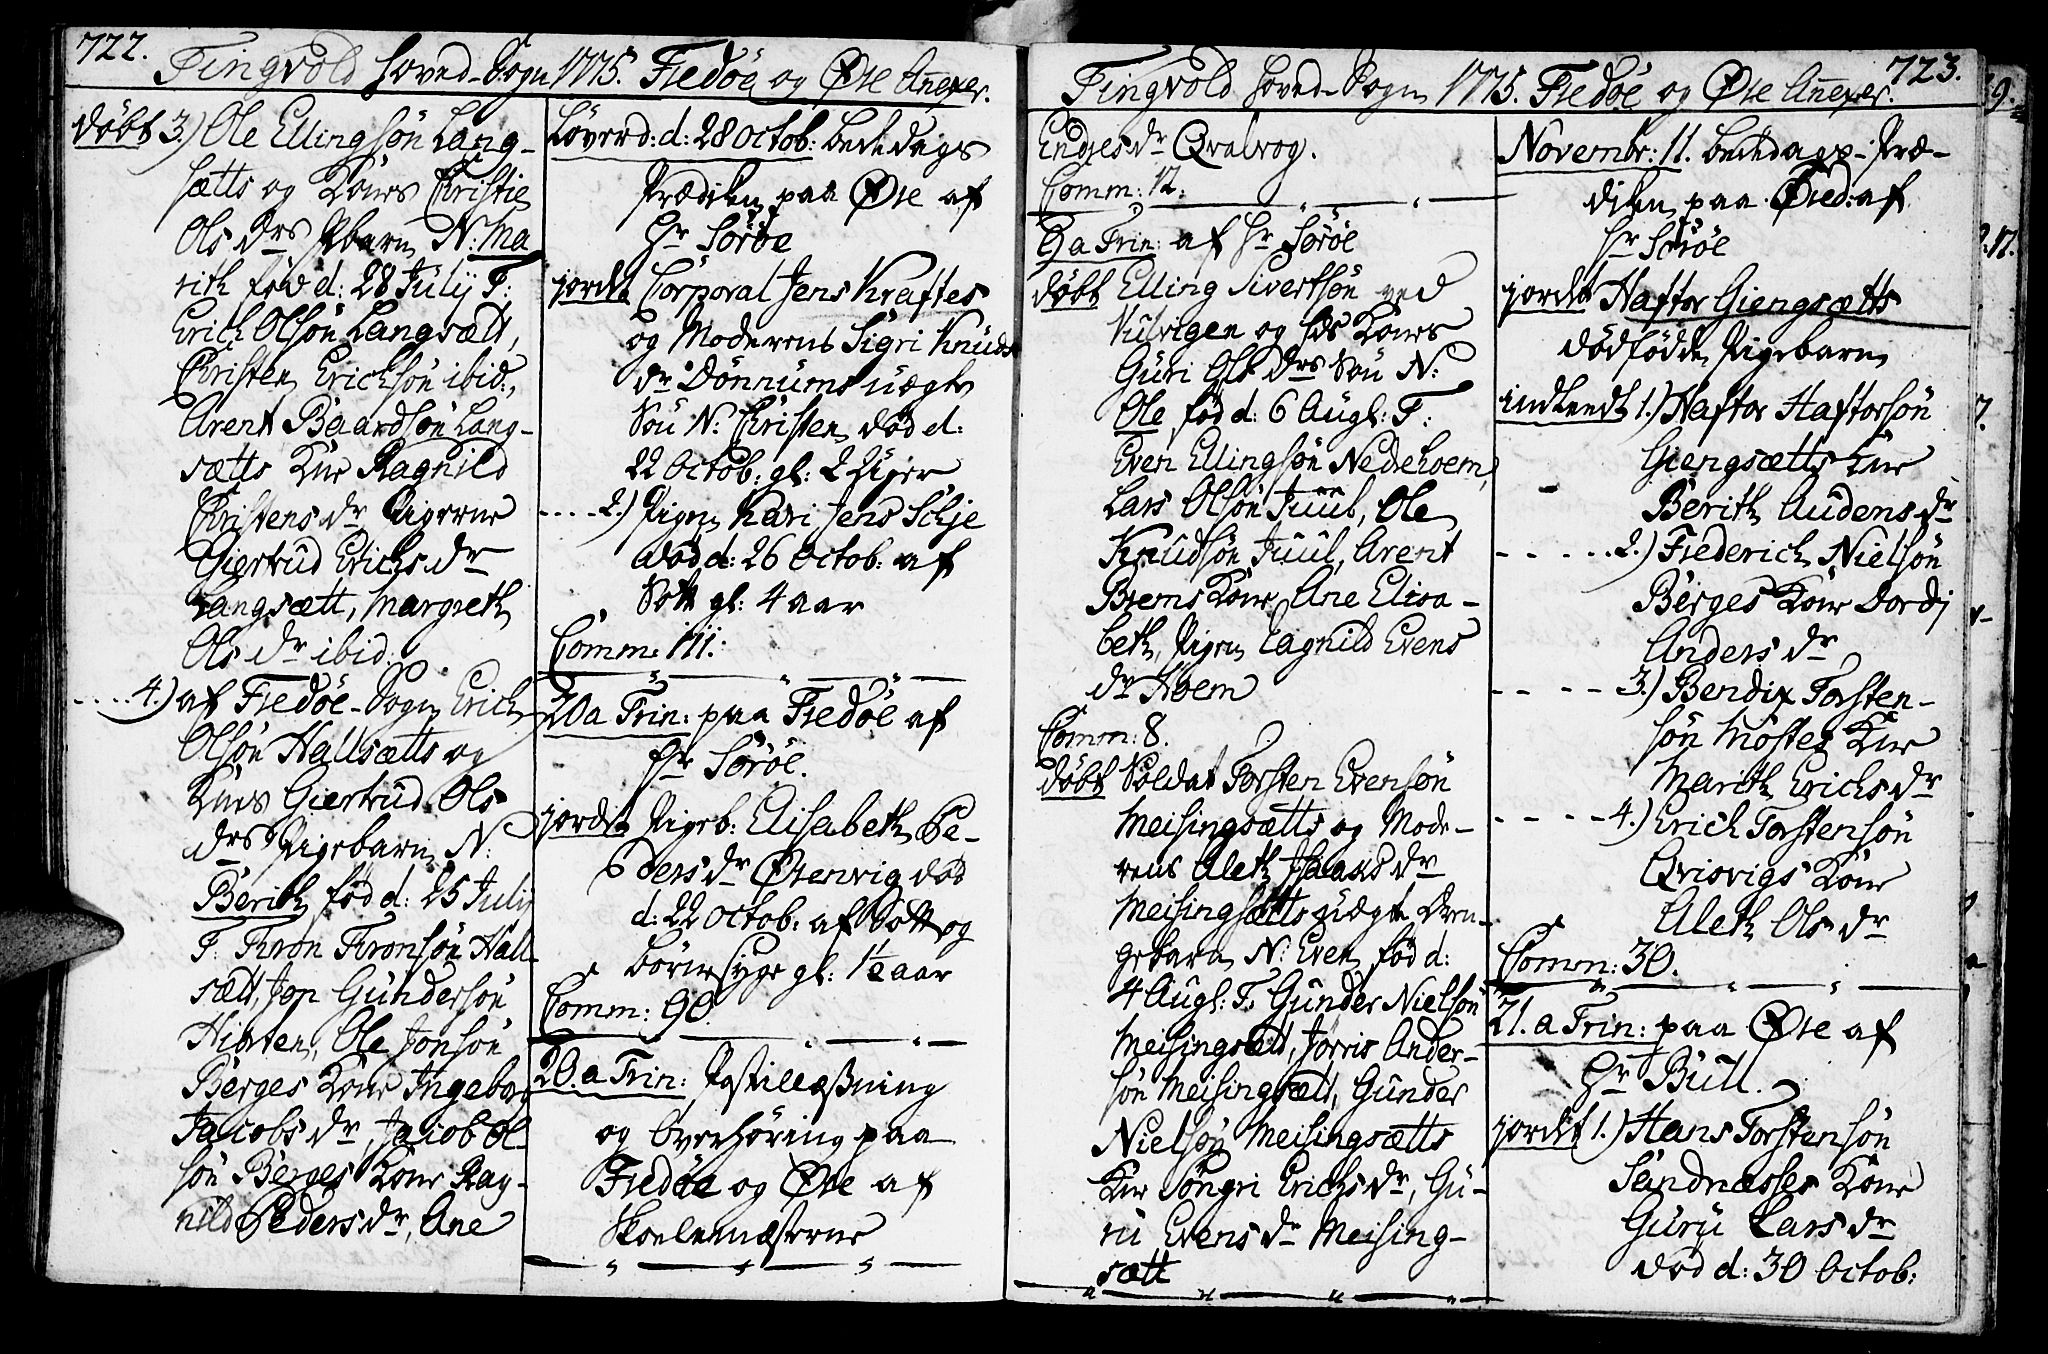 722.
Tingvold Hoved-Sogn 1775. Fredøe og Øre Anexer.
døbt 3.) Ole Ellingsøn Lang-
sætts og Kones Christie
Ols drs Pbarn N: Ma
rith fød d: 28 July F:
Erich Olsøn Langsætt,
Christen Erichsøn ibid:,
Arent Baardsøn Lang-
sætts Kone Ragnild
Christens dr Pigerne
Giertrud Erichs dr
Langsætt, Margreth
Ols dr ibid.
....4.) af Fredøe-Sogn Erich
Olsøn Hallsætts og
Kones Giertrud Ols
drs Pigebarn N:
Berith fød d: 25 July
F: Tron Tronsøn Hall-
sætt, Jon Gundersøn
Ole Jonsøn
Berges Kone Ingeborg
Jacobs dr, Jacob Ol-
søn Berges Kone Rag-
nild Peders dr, Ane
Løverd: d: 28 Octob: bededags
Prædiken paa Øre af
Hr Sørøe
jordet Corporal Jens Kraftes
og Moderens Sigri Knuds
dr Dønnums uægte
Søn N: Christen død d:
22 Octob: gl: 2 Uger
....2.) Pigen Kari Jens
død d: 26 Octob: af
Sott gl: 4 aar
Comm: 111.
20 a Trin: paa Fredøe af
Hr Sørøe.
jordet Pigeb: Elisabeth Pe-
ders dr Ørenvig død
d: 22 Octob: af Sott og
Børnesyge gl: 1½ aar
Comm: 90.
20. a Trin: Postillæsning
og Overhøring paa
Fredøe og Øre af
Skolemæsterne
723.
Tingvold Hoved-Sogn 1775. Fredøe og Øre Anexer.
Endres dr Qvalvog.
Comm: 12.
9 a Trin: af Hr Sørøe
døbt Elling Sivertsøn ved
Vulvigen og Hs Kones
Guri Ols drs Søn N:
Ole fød d: 6 Augl: F:
Even Ellingsøn Nedrehoem,
Lars Olsøn Juul, Ole
Knudsøn Juul, Arent
Brems Kone Ane Elisa-
beth, Pigen Ragnild Evens
dr Hoem
Comm: 8.
døbt Soldat Torsten Evensøn
Meisingsætts og Mode-
rens Aleth Isaacs dr
Meisingsætts uægte Dren-
gebarn N: Even fød d:
4 Augl: F: Gunder Nielsøn
Meisingsætt, Jørris Ander-
søn Meisingsætt, Gunder
Nielsøn Meisingsætts
Kone Søngri Erichs dr, Gu-
ru Evens dr Meising-
sætt
Novembr: 11. bededags-Præ-
diken paa Øre d: af
Hr Sørøe
jordet Haftor Giengsætts
dødfødde Pigebarn
indleedt 1.) Haftor Haftorsøn
Giengsætts Kone
Berith Audens dr
.....2.) Frederich Nielsøn
Berges Kone Dordi
Anders dr
....3.) Bendix Torsten-
søn Møstes Kone
Marith Erichs dr
.....4.) Erich Torstensøn
Qvisvigs Kone
Aleth Ols dr
Comm: 30.
21. a Trin: paa Øre af
Hr Bull.
jordet 1.) Hans Torstensøn
Sandnæsses Kone
Guru Lars dr
død d: 30 Octob: